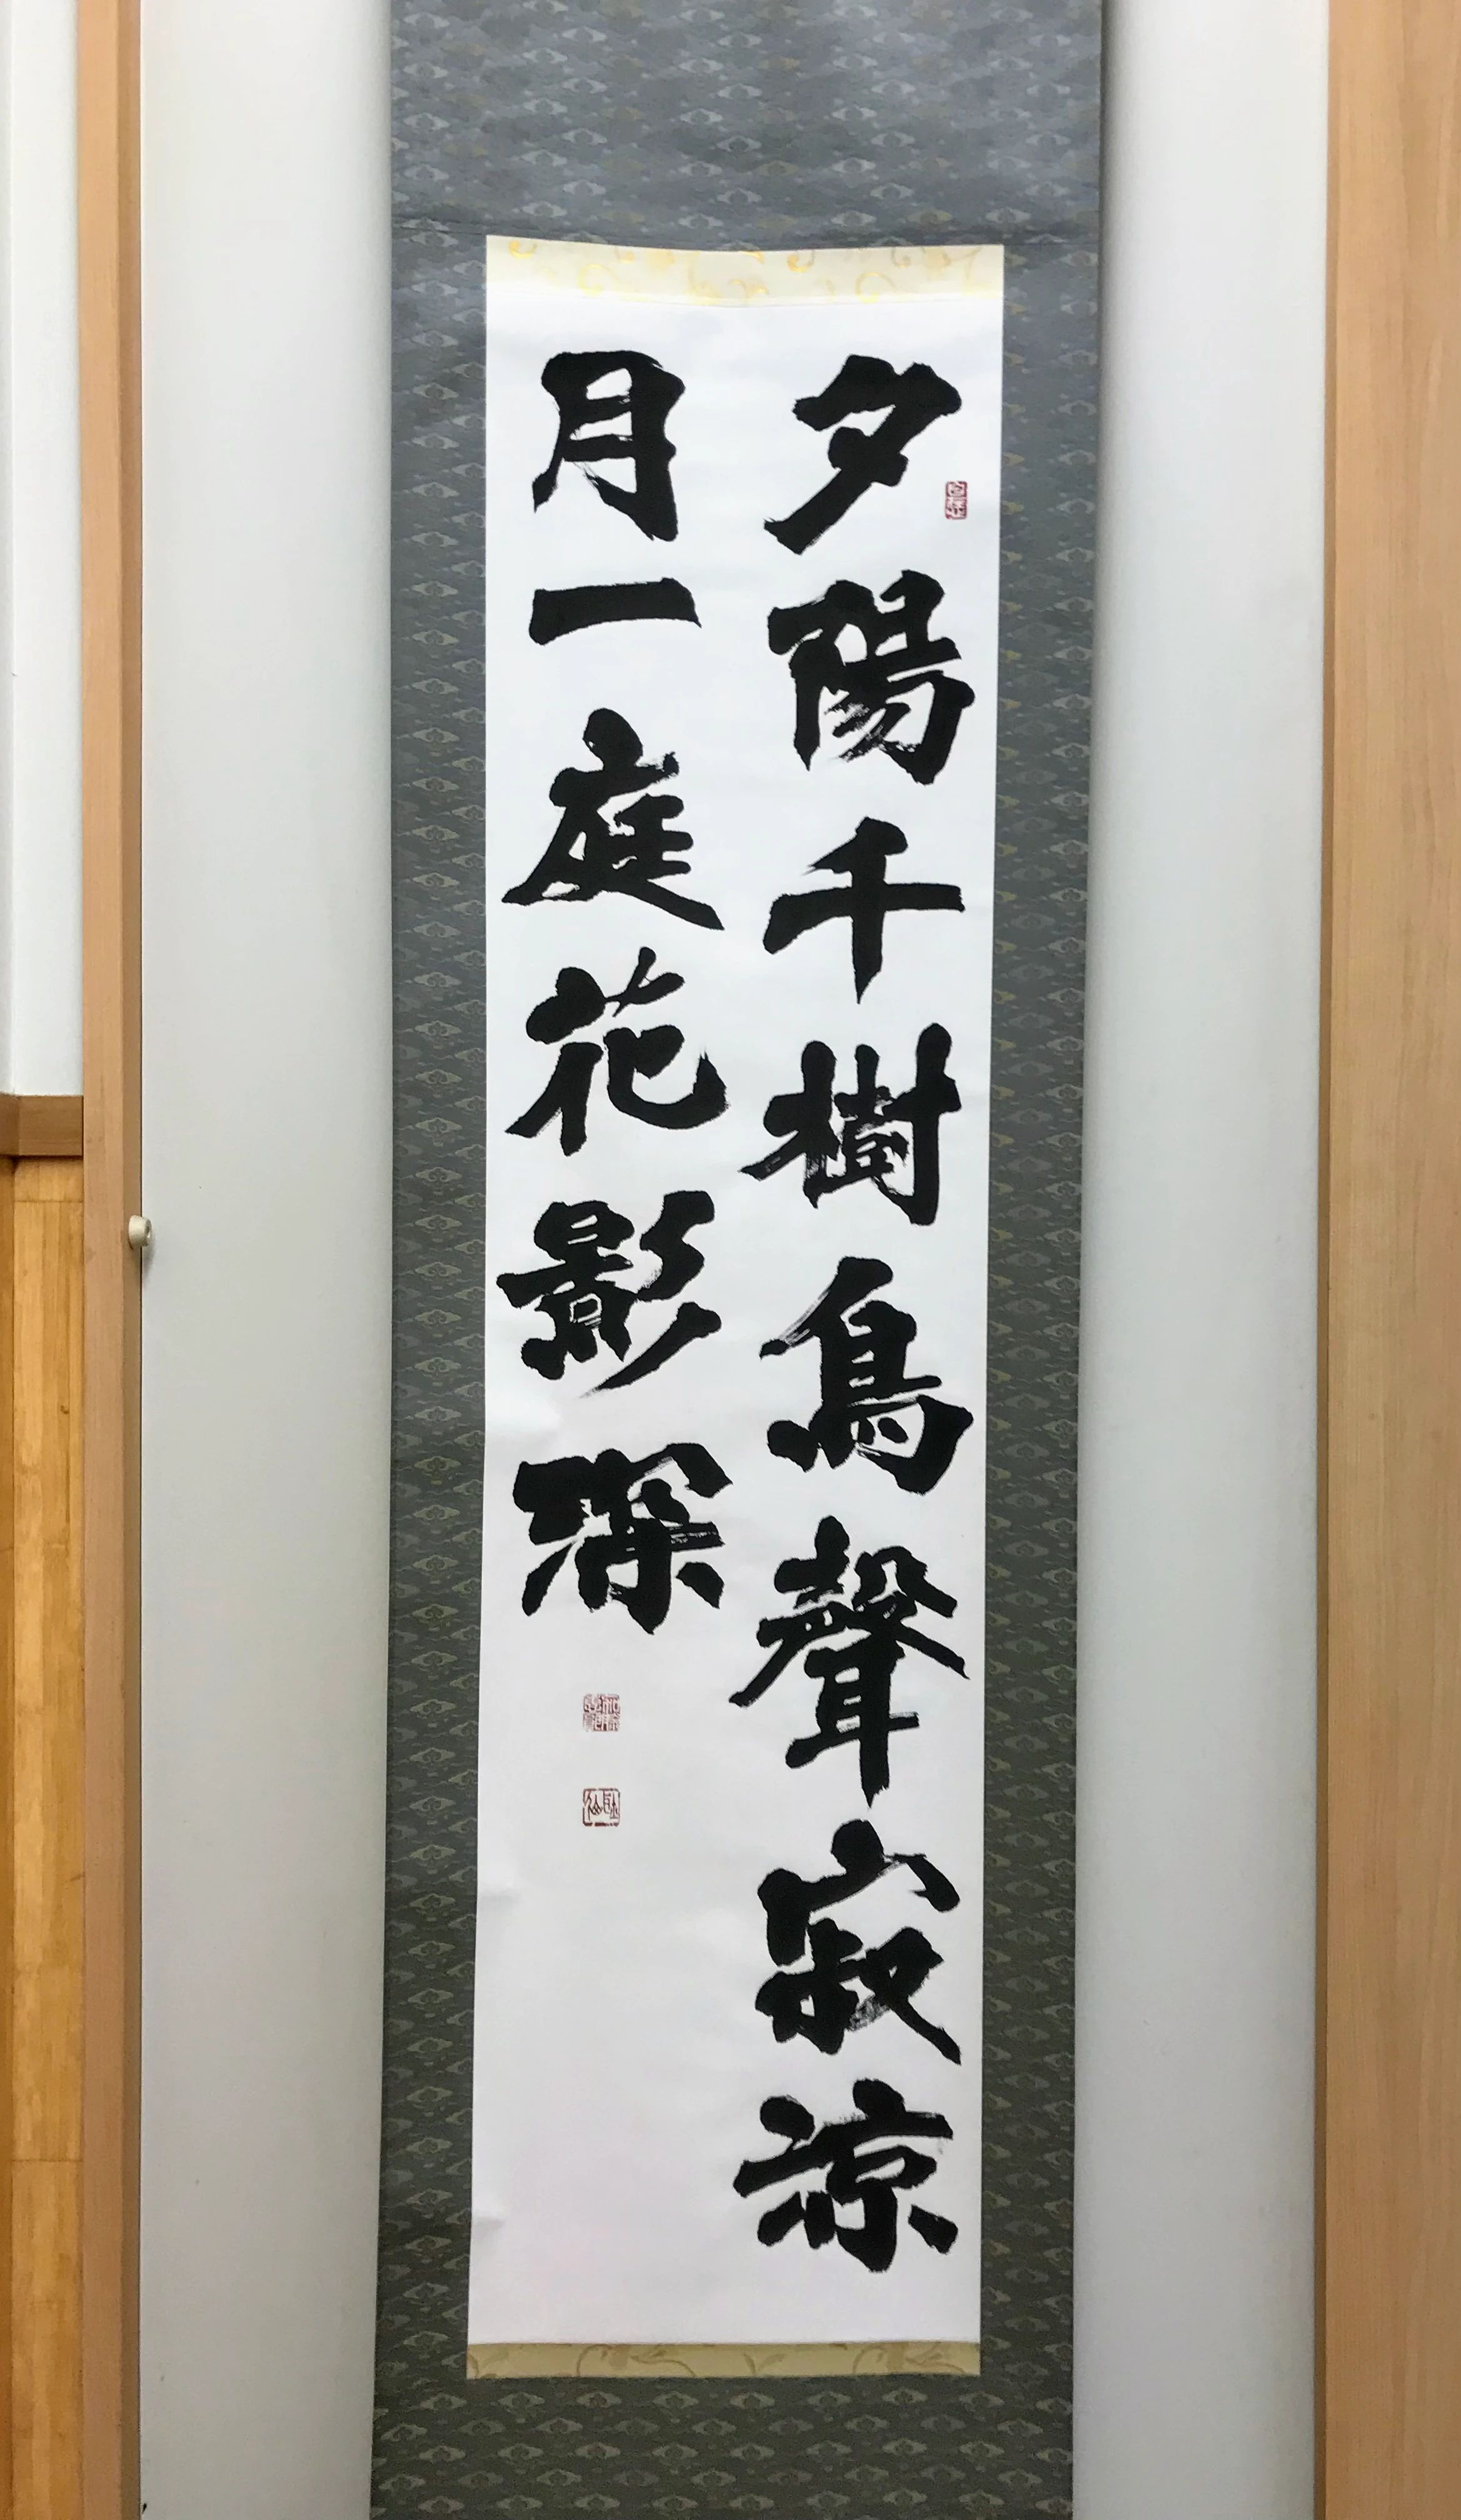 夕陽千樹鳥聲寂涼
月一庭花影深